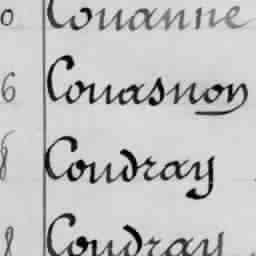 0 Couanne
6 Couasnon
8 Coudray
8 Coudray